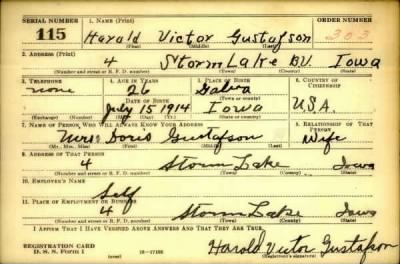 SERIAL NUMBER 1. NAME (Print) ORDER NUMBER
115 Harald Victor Gustafson 303
(First) (Middle) (Last)
2. ADDRESS (Print)
4 Storm Lake B.V. Iowa
(Number and street or R. F. D. number) (Town) (County) (State)
3. TELEPHONE 4. AGE IN YEARS 5. PLACE OF BIRTH 6. COUNTRY OF CITIZENSHIP
none 26 Galva
DATE OF BIRTH (Town or county)
July 15 1914 Iowa U.S.A.
(Exchange) (Number) (Mo.) (Day) (Yr.) (State or country)
7. NAME OF PERSON WHO WILL ALWAYS KNOW YOUR ADDRESS 8. RELATIONSHIP OF THAT PERSON
Mrs. Doris Gustafson Wife
(Mr., Mrs., Miss) (First) (Middle) (Last)
9. ADDRESS OF THAT PERSON
4 Storm Lake Iowa
(Number and street or R. F. D. number) (Town) (County) (State)
10. EMPLOYER'S NAME
Self
11. PLACE OF EMPLOYMENT OR BUSINESS
4 Storm Lake Iowa
(Number and street or R. F. D. number) (Town) (County) (State)
I AFFIRM THAT I HAVE VERIFIED ABOVE ANSWERS AND THAT THEY ARE TRUE.
REGISTRATION CARD
D. S. S. Form 1 (over) 16—17105 Harold Victor Gustafson